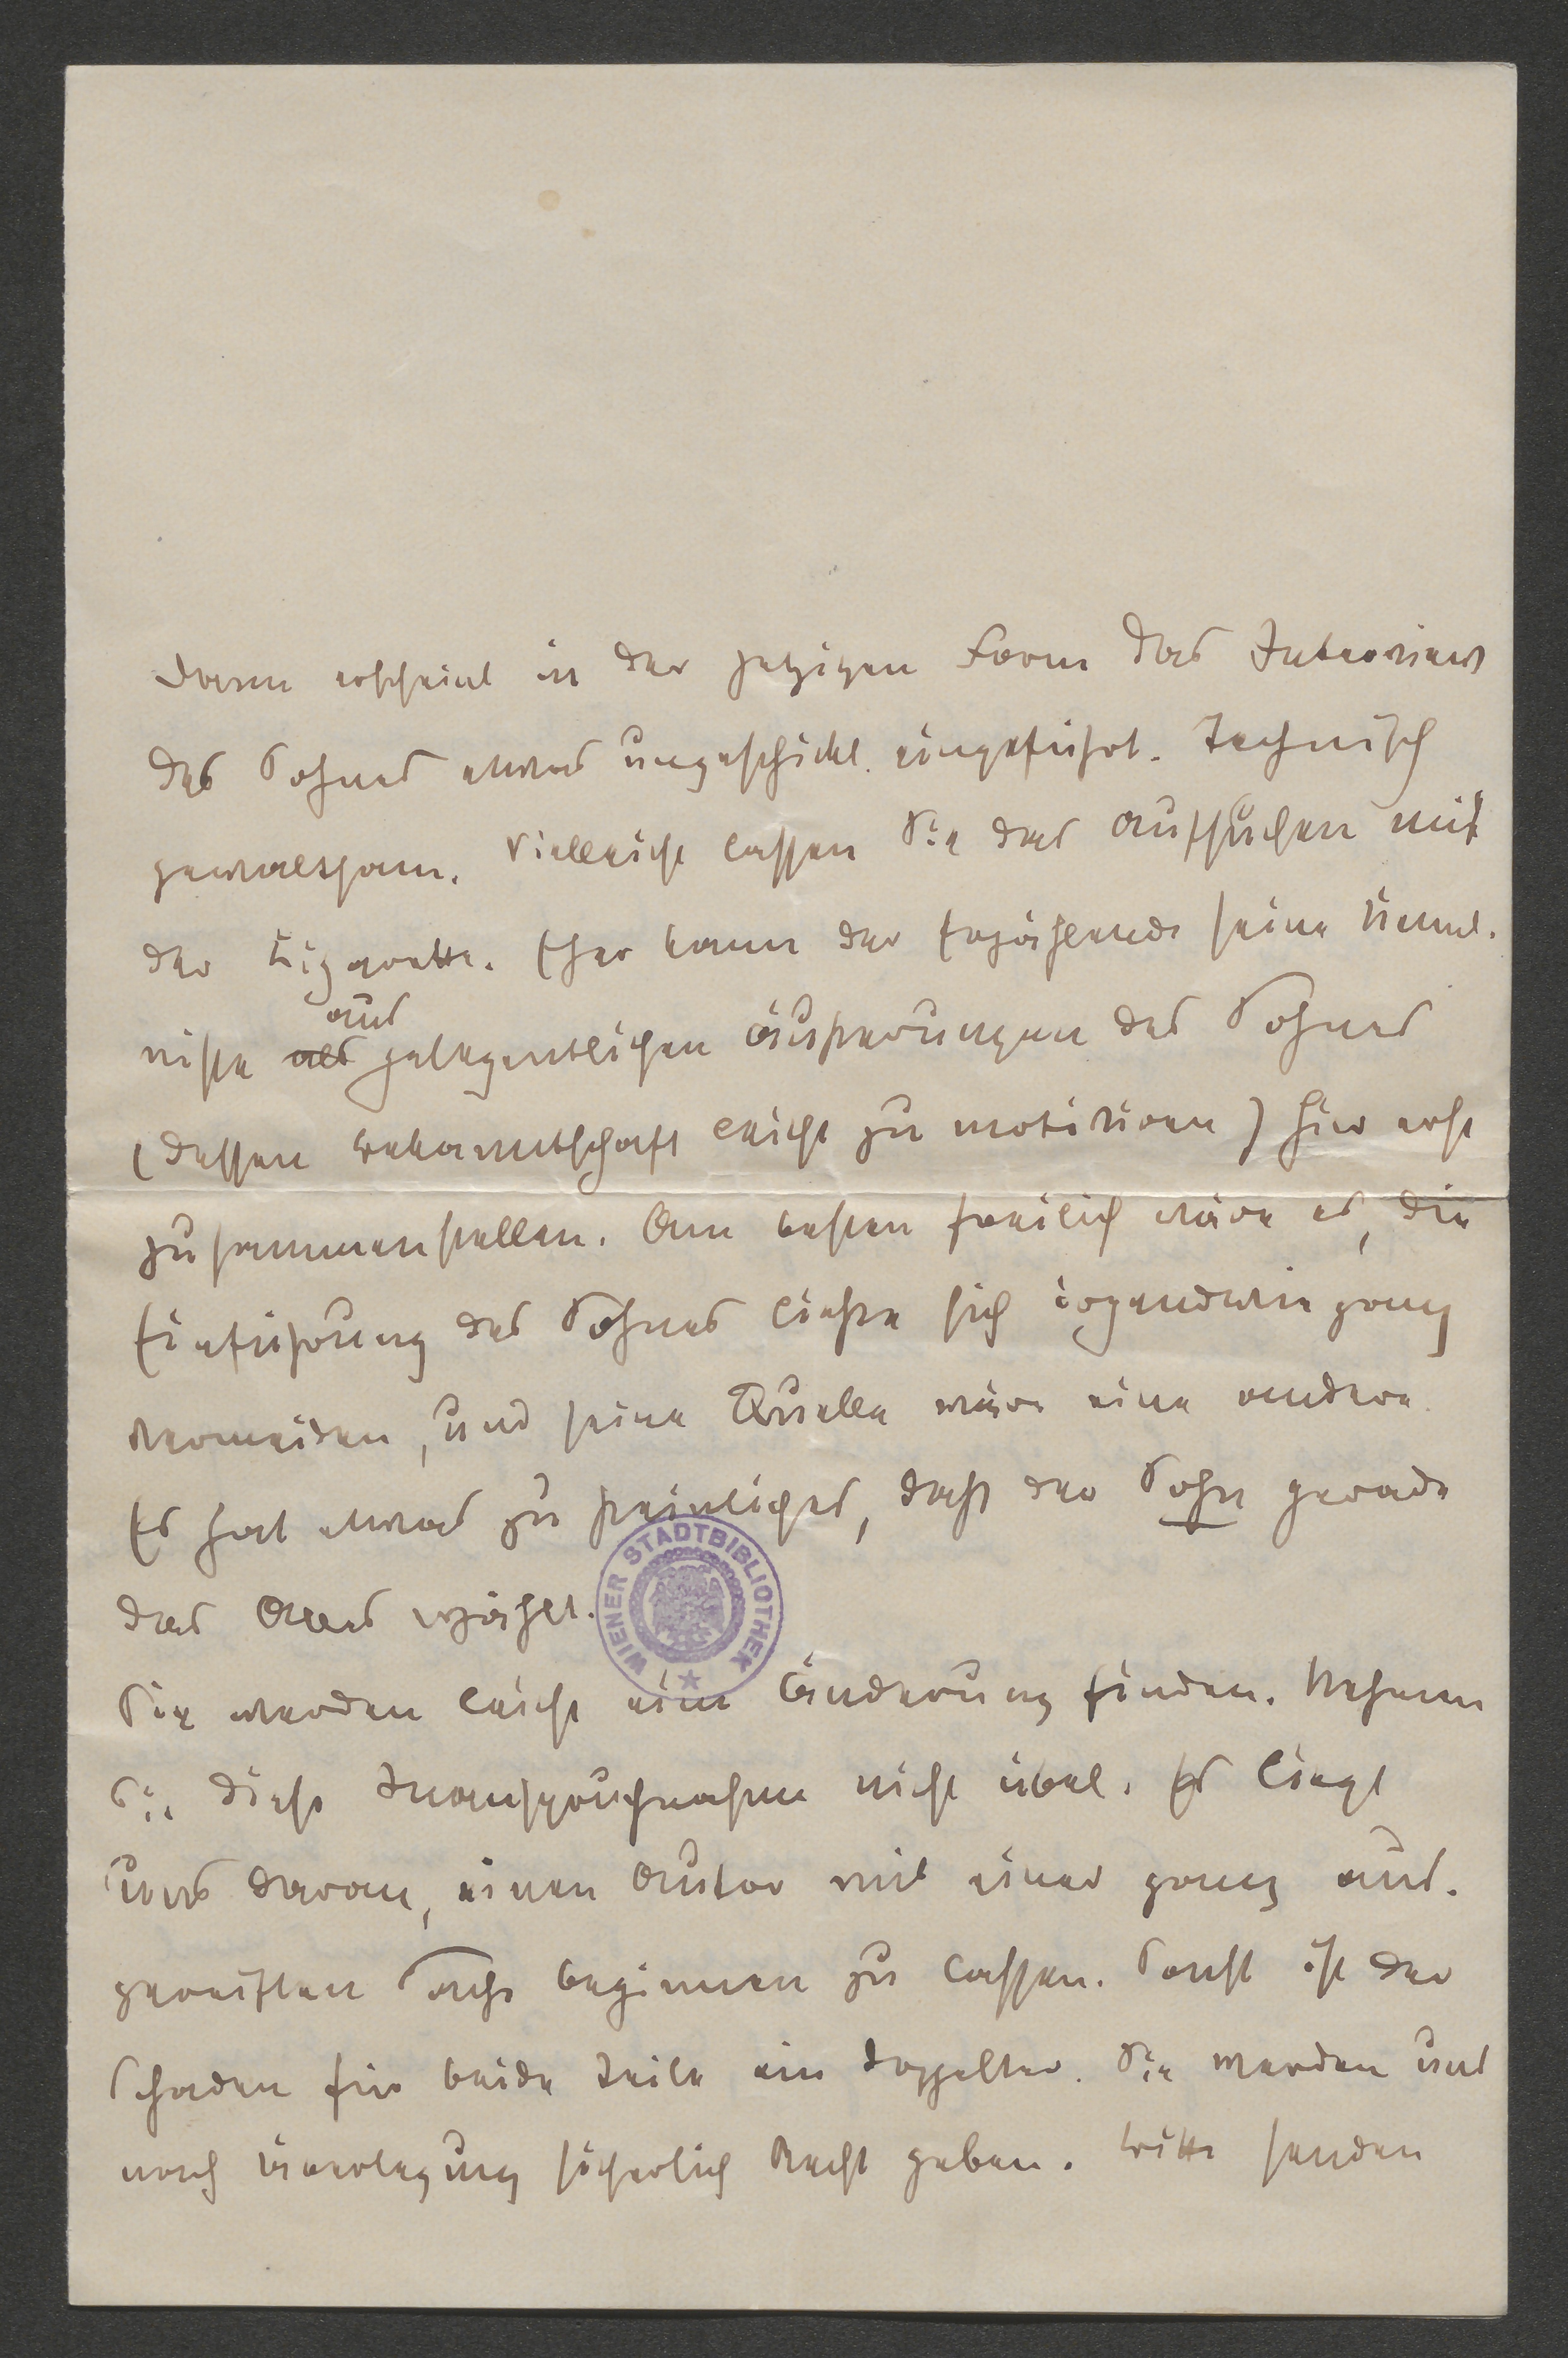 Dann erscheint in der jetzigen Form das Interview
des Sohnes etwas ungeschickt eingeführt. Technisch
gewaltsam. Vielleicht lassen Sie das Aufsuchen mit
der Cigarette. Eher kann der Erzählende seine Kennt-
nisse als aus gelegentlichen Äusserungen des Sohnes
(dessen Bekanntschaft leicht zu motiviren) hier erst
zusammenstellen. Am besten freilich wäre es, die
Einführung des Sohnes liesse sich irgendwie ganz
vermeiden, und seine Quelle wäre eine andere
Es hat etwas zu peinliches, dass der Sohn gerade
das Alles erzählt.
Sie werden leicht eine Änderung finden. Nehmen
Sie diese Inanspruchnahme nicht übel. Es liegt
uns daran, einen Autor mit einer ganz aus-
gereiften Sache beginnen zu lassen. Sonst ist der
Schaden für beide Teile ein doppelter. Sie werden uns
nach Überlegung sicherlich Recht geben. Bitte senden
WIENER STADTBIBLIOTHEK